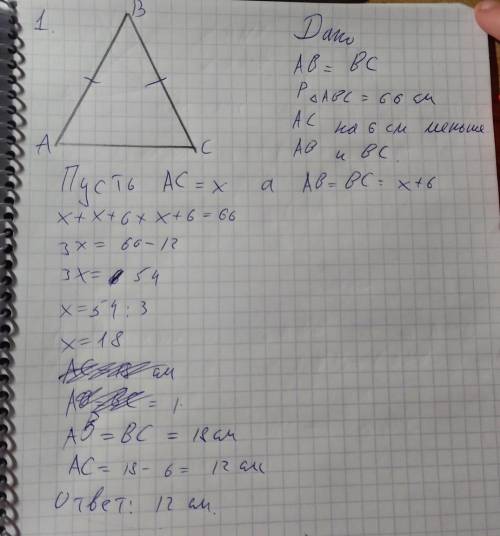 1.
B
A
C
Дано
AB = BC
P△ABC = 66 см
AC на 6 см меньше
AB и BC.
Пусть AC = x а AB = BC = x+6
x + x + 6 + x + 6 = 66
3x = 66 - 12
3x = 54
x = 54 : 3
x = 18
см
= 1
AB = BC = 18 см
AC = 18 - 6 = 12 см
Ответ: 12 см.